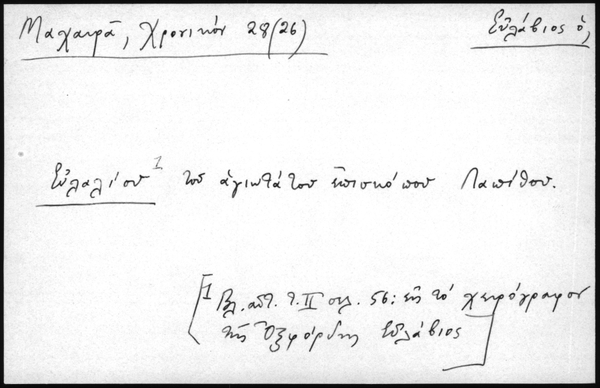 Μαχαιρᾶ, Χρονικόν 28(26)
Εὐλάβιος ὁ,
Εὐλαλίου¹ τοῦ ἁγιωτάτου ἐπισκόπου Λαπίθου.
[1 Βλ. αὐτ. τ. II σελ. 56: εἰς τὸ χειρόγραφον
τῆς Ὀξφόρδης Εὐλάβιος]